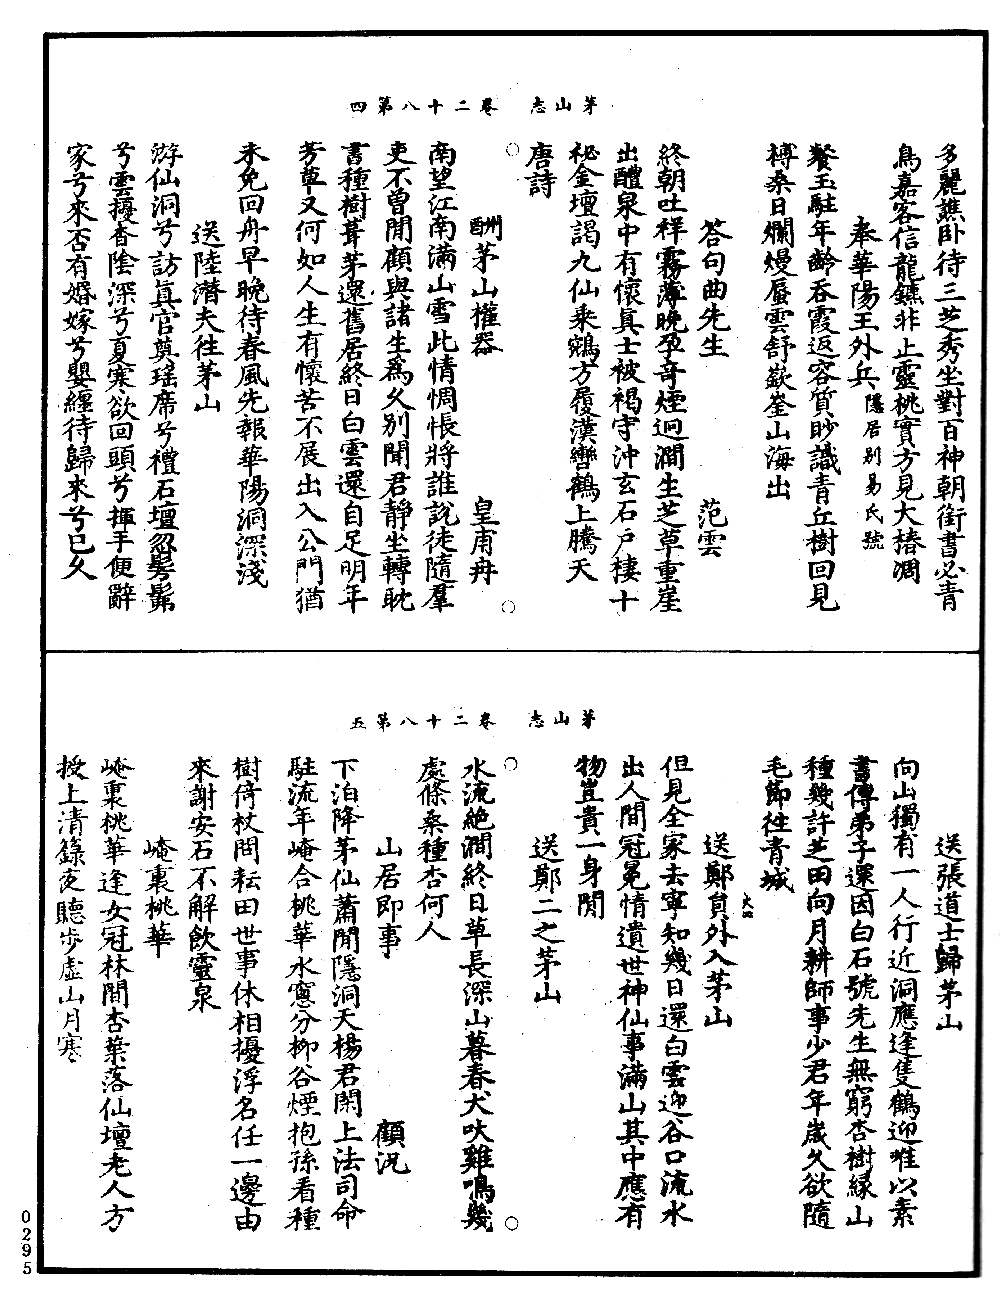 茅山志　卷二十八第四
多麗譙卧待三芝秀坐對百神朝銜書必青
鳥嘉客信龍鑣非止靈桃實方見大椿凋
奉華陽王外兵隱居别易氏號
餐玉駐年齡吞霞返容質眇識青丘樹回見
榑桑日爛熳蜃雲舒嶔崟山海出
答句曲先生　范雲
終朝吐祥霧薄晚孕奇煙迥澗生芝草重崖
出醴泉中有懷真士被褐守沖玄石户棲十
秘金壇謁九仙乘鵷方履漢轡鶴上騰天
唐詩
○　○
酬茅山權器　皇甫冉
南望江南滿山雪此情惆悵將誰説徒隨羣
吏不曾閒顧與諸生爲久别聞君靜坐轉耽
書種樹葺茅還舊居終日白雲還自足明年
芳草又何如人生有懷苦不展出入公門猶
未免回舟早晚待春風先報華陽洞深淺
送陸潛夫往茅山
游仙洞兮訪真官奠瑶席兮禮石壇忽髣髴
兮雲擾杳陰深兮夏寒欲回頭兮揮手便辭
家兮來否有婚嫁兮嬰纏待歸來兮已久
茅山志　卷二十八第五
送張道士歸茅山
向山獨有一人行近洞應逢隻鶴迎唯以素
書傳弟子還因白石號先生無窮杏樹緑山
種幾許芝田向月耕師事少君年歲久欲隨
毛節往青城
送鄭員外入茅山
但見全家去寧知幾日還白雲迎谷口流水
出人間冠冕情遺世神仙事滿山其中應有
物豈貴一身閒
送鄭二之茅山
○　○
水流絶澗終日草長深山暮春犬吠雞鳴幾
處條桑種杏何人
山居即事　顧況
下泊降茅仙蕭閒隱洞天楊君閑上法司命
駐流年崦合桃華水窗分柳谷煙抱孫看種
樹倚杖問耘田世事休相擾浮名任一邊由
來謝安石不解飲靈泉
崦裏桃華
崦裏桃華逢女冠林間杏葉落仙壇老人方
授上清籙夜聽步虛山月寒
0295